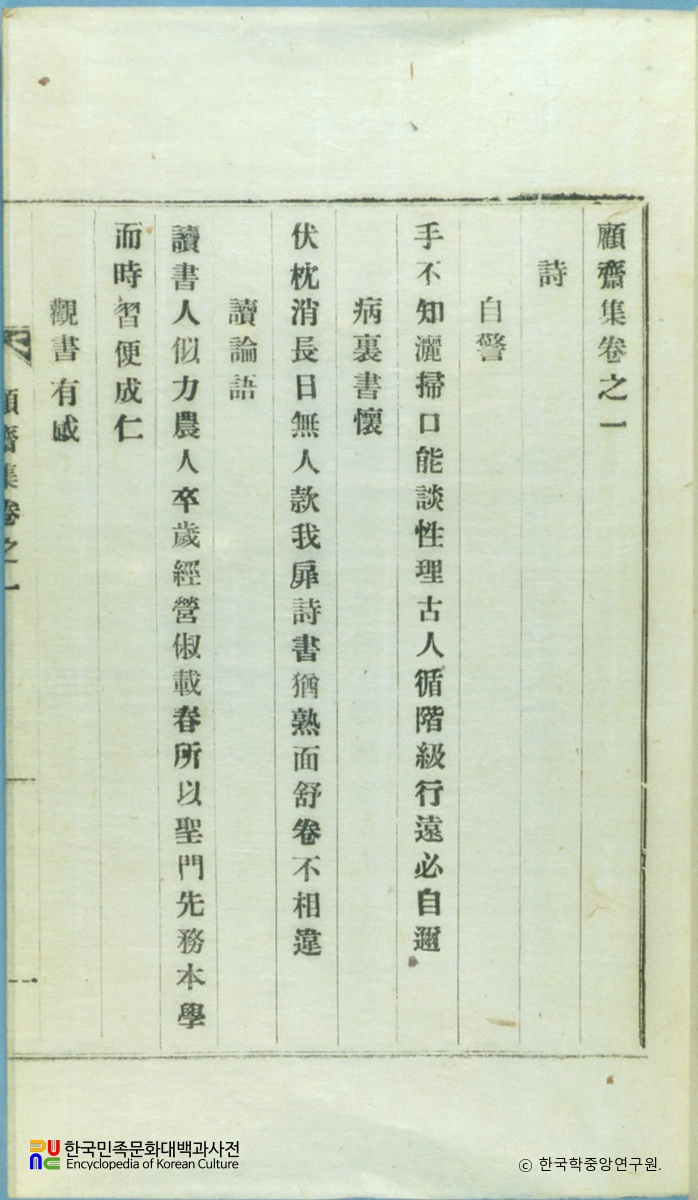 顧齋集卷之一
詩
自警
手不知灑掃口能談性理古人循階級行遠必自邇
病裏書懷
伏枕消長日無人款我扉詩書猶熟面舒卷不相違
讀論語
讀書人似力農人卒歲經營俶載春所以聖門先務本學
而時習便成仁
觀書有感
顧齋集卷之一
一
한국민족문화대백과사전
Encyclopedia of Korean Culture
ⓒ 한국학중앙연구원.